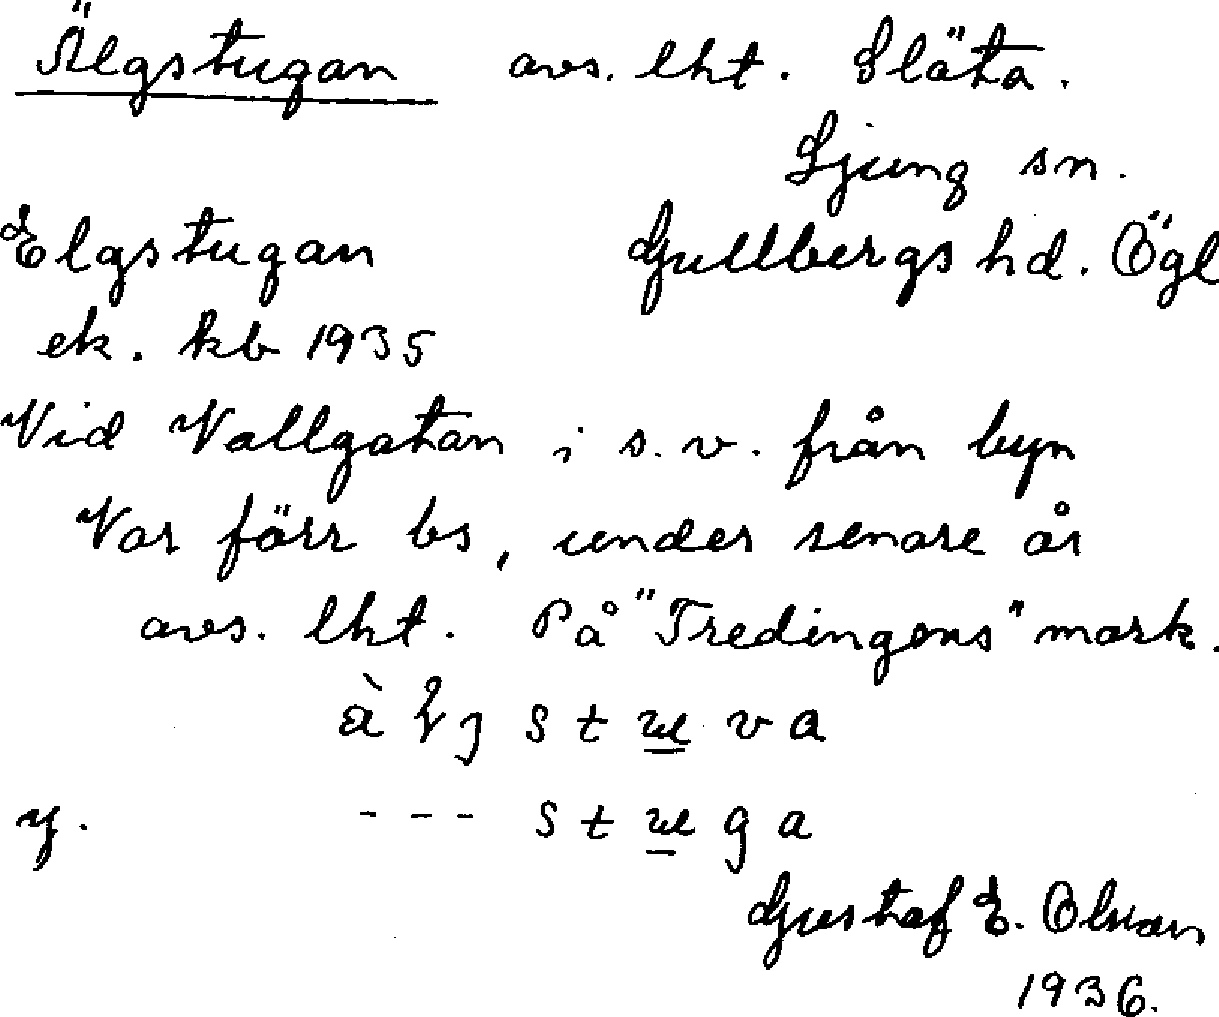 Älgstugan avs. lht. Släta.
Ljung sn.
Elgstugan Gullbergs hd. Ögl
ek. kb 1935
Vid Vallgatan i s.v. från byn
Var förr bs, under senare år
avs. lht. På "Tredingens" mark.
s t u v a
y. - - - s t u g a
Gustaf E. Olsson
1936.